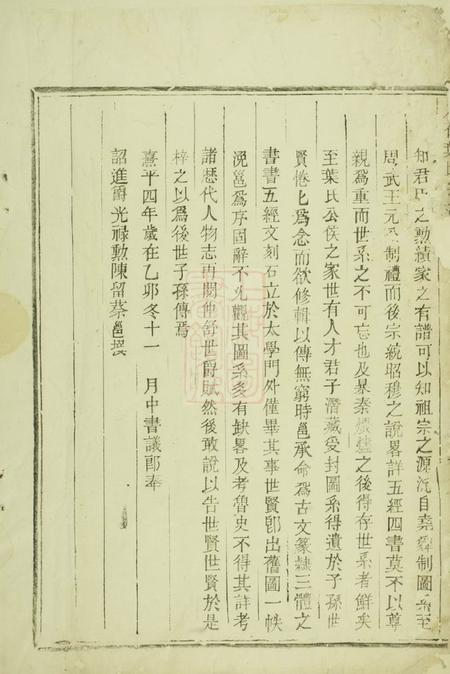 知君臣之勲績家之有譜可以知祖宗之源流自堯舜制圖系至
周武王元公制禮而後宗統昭穆之說畧詳五經四書莫不以尊
親爲重而世系之不可忘也及暴秦煨燼之後得存世系者鮮矣
至葉氏公侯之家世有人才君子潛藏受封圖系得遺於子孫世
賢惓匕爲念而欲修輯以傳無窮時邕承命爲古文篆隸三體之
書書五經文刻石立於太學門外僅畢其事世賢卽出舊圖一帙
浼邕爲序固辭不允觀其圖系多有缺畧及考魯史不得其詳考
諸歷代人物志再閱他舒世爵賦然後敢說以告世賢世賢於是
梓之以爲後世子孫傳焉
熹平四年歲在乙卯冬十一 月中書議郎奉
詔進爵光祿勲陳留蔡邕撰